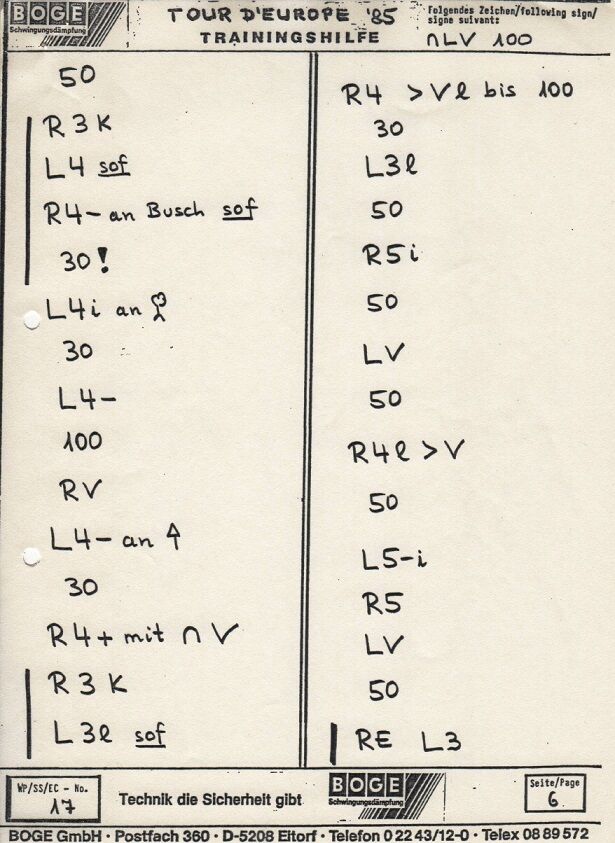 BOGE
Schwingungsdämpfung
TOUR D'EUROPE '85
TRAININGSHILFE
Folgendes Zeichen/following sign/
signe suivant:
∩LV 100
50
R3K
L4 sof
R4- an Busch sof
30!
L4i an
30
L4-
100
RV
L4- an
30
R4+ mit ∩ V
R3K
L3l sof
R4 >Vl bis 100
30
L3l
50
R5i
50
LV
50
R4l >V
50
L5-i
R5
LV
50
RE L3
WP/SS/EC - No.
17
Technik die Sicherheit gibt
BOGE
Schwingungsdämpfung
Seite/Page
6
BOGE GmbH · Postfach 360 · D-5208 Eitorf · Telefon 0 22 43/12-0 · Telex 08 89 572